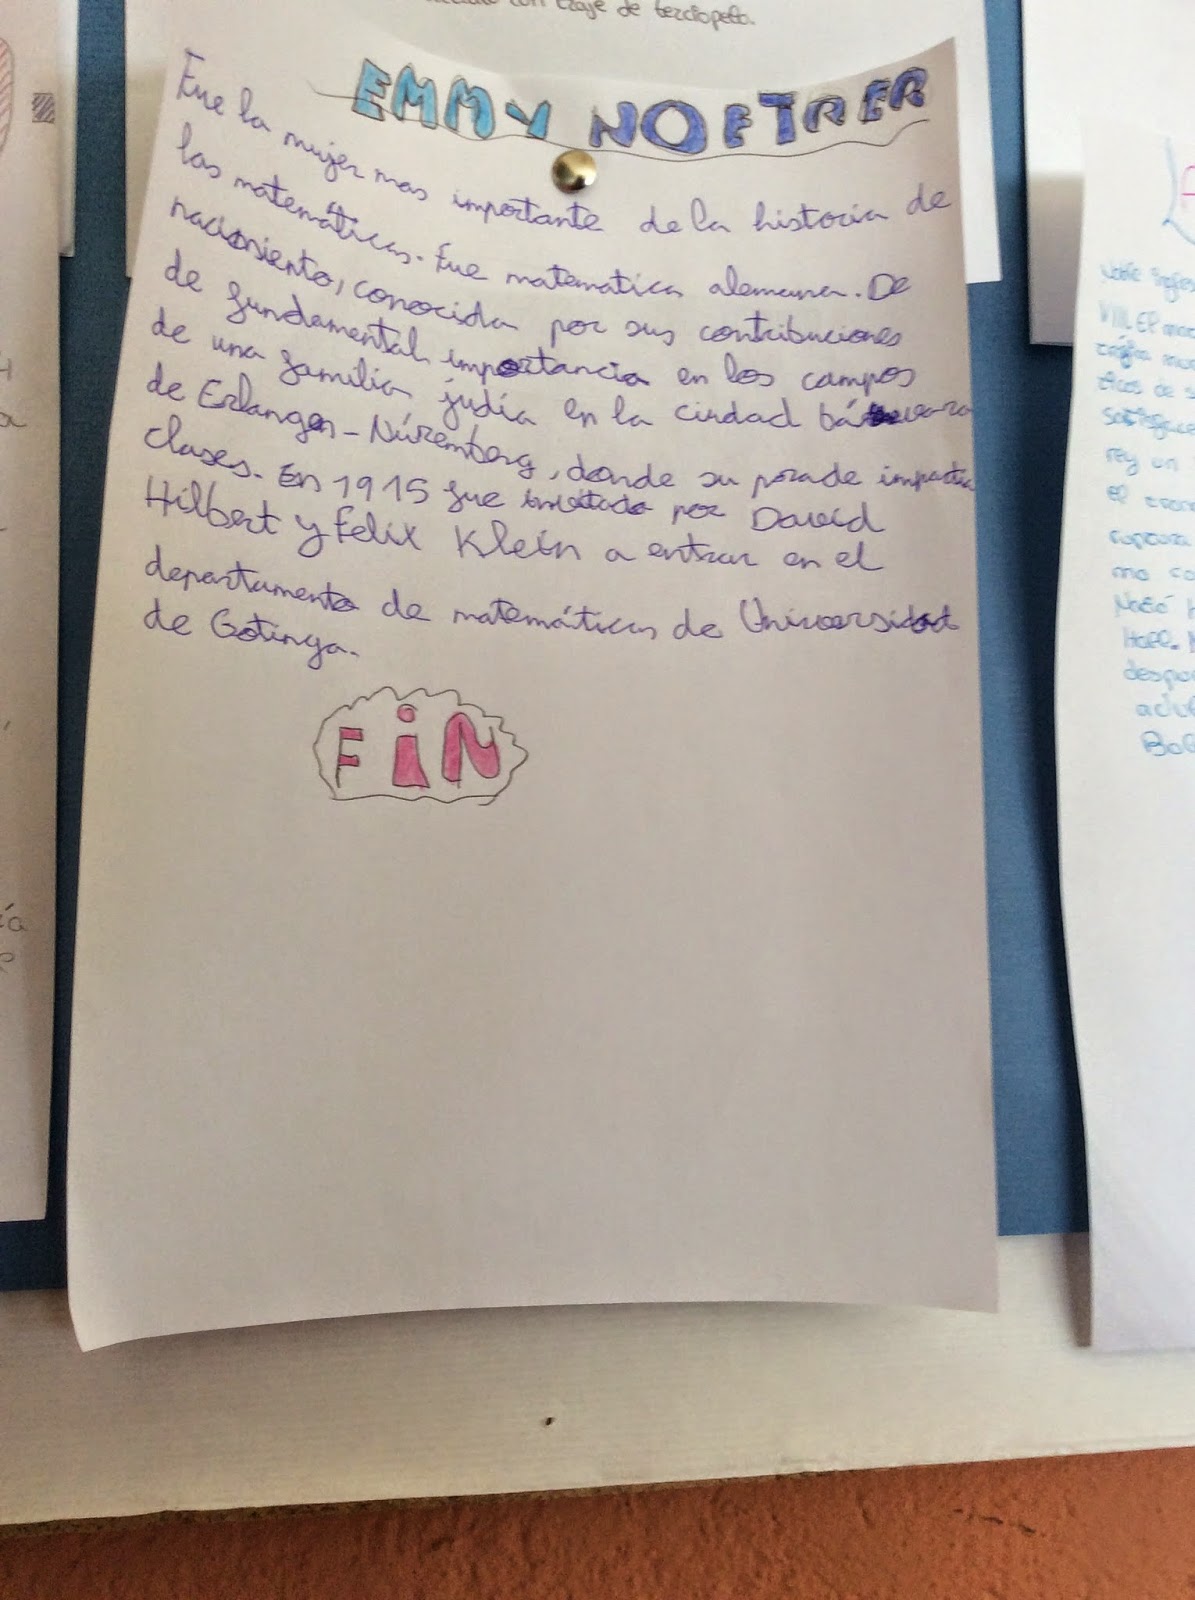 con traje de terciopelo.
EMMY NOETRER
Fue la mujer mas importante de la historia de
las matemáticas. Fue matematica alemana. De
nacimiento, conocida por sus contribuciones
de fundamental importancia en los campos
de una familia judía en la ciudad bávara
de Erlangen-Núremberg, donde su prade impartia
clases. En 1915 fue invitada por David
Hilbert y Felix Klein a entrar en el
departamento de matemáticas de Universidad
de Gotinga.
FiN
VIII, EP
de s
rey un
el
ruptura
ma co
Nació
Hall.
despu